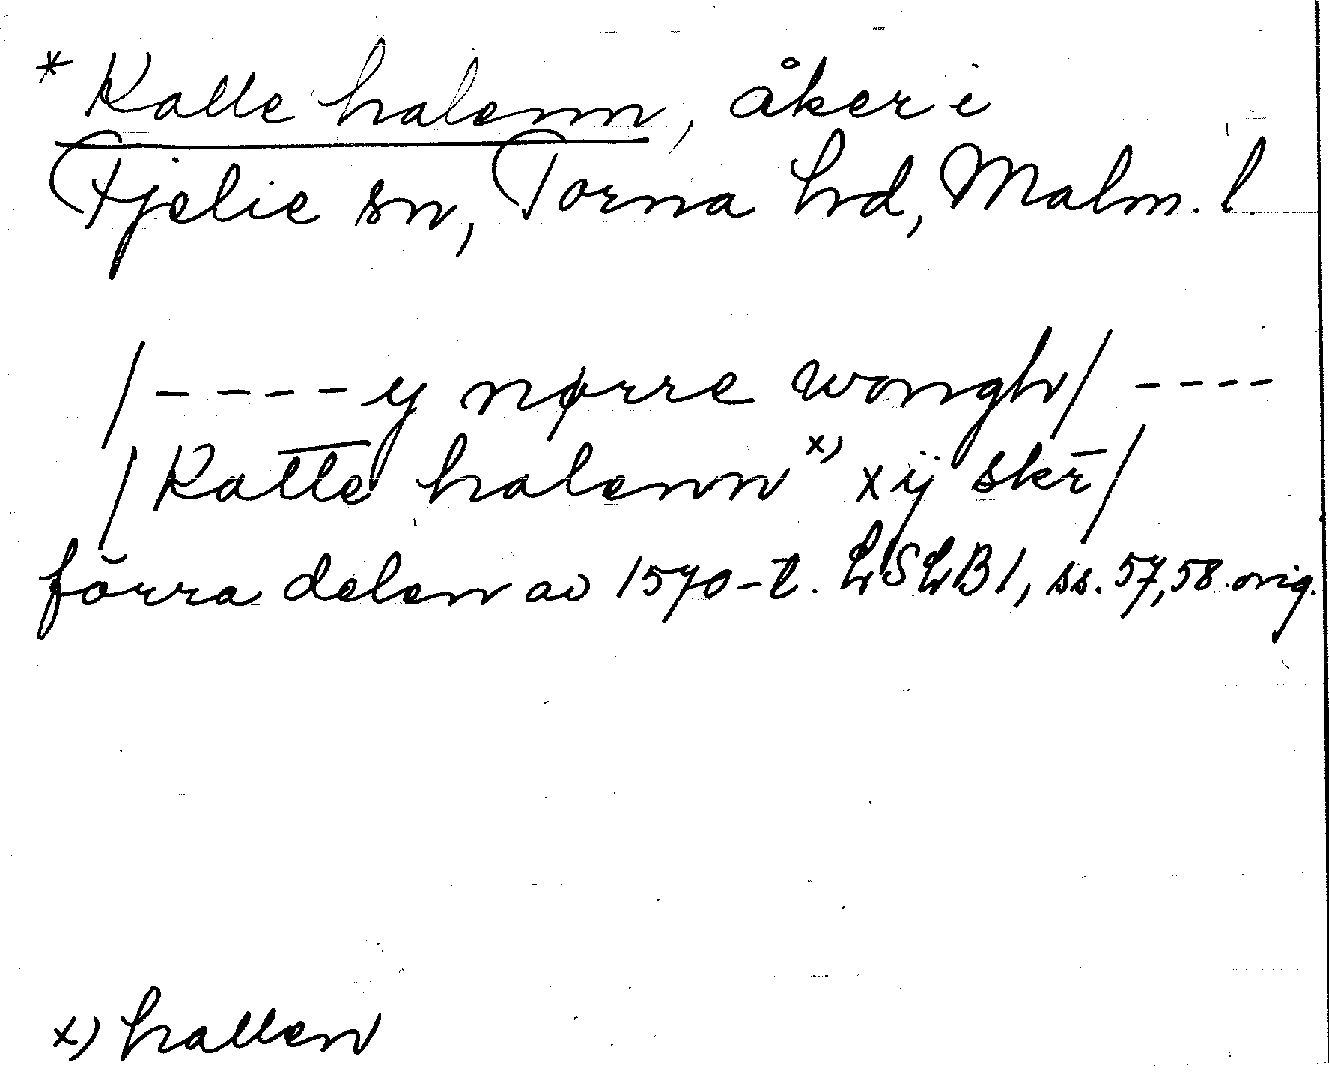 * Katte halenn, åker i
Fjelie sn, Torna hd, Malm. l.
/----y nørre wongh/ ----
/Katte halenn x) xij skr̄/
förra delen av 1570-t. LSLB1, ss. 57,58 orig.
x) hallen